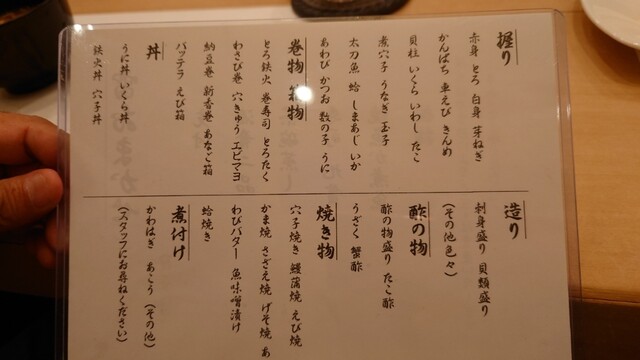 握り
赤身 とろ 白身 芽ねぎ
かんぱち 車えび きんめ
貝柱 いくら いわし たこ
煮穴子 うなぎ 玉子
太刀魚 蛤 しまあじ いか
あわび かつお 数の子 うに
巻物 箱物
とろ鉄火 巻寿司 とろたく
わさび巻 穴きゅう エビマヨ
納豆巻 新香巻 あなご箱
バッテラ えび箱
丼
うに丼 いくら丼
鉄火丼 穴子丼
造り
刺身盛り 貝類盛り
(その他色々)
酢の物
酢の物盛り たこ酢
うざく 蟹酢
焼き物
穴子焼き 鰻蒲焼 えび焼
かま焼 さざえ焼 げそ焼 あ
わびバター 魚味噌漬け
蛤焼き
煮付け
かわはぎ あこう (その他)
(スタッフにお尋ねください)